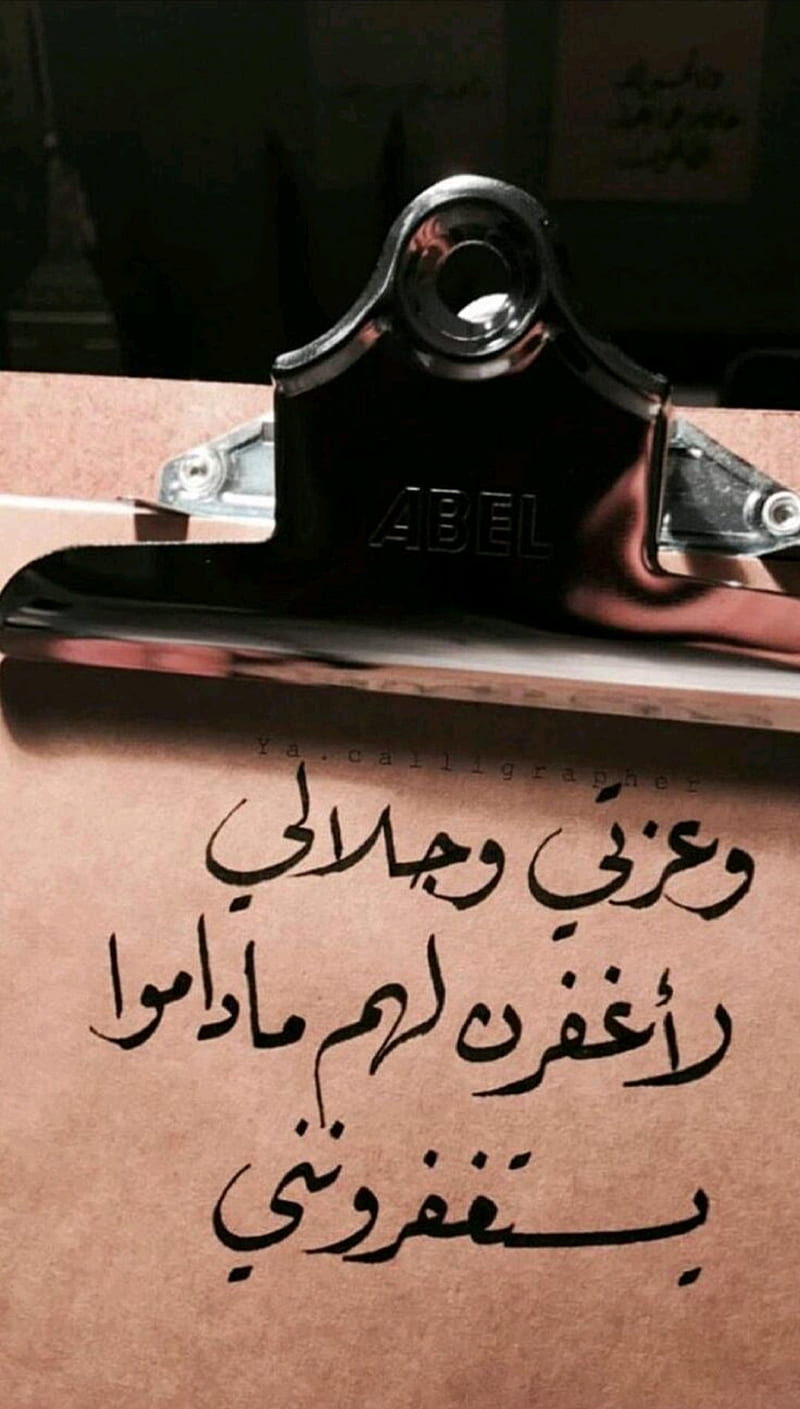 ABEL
Ya.calligrapher
وعزتي وجلالي
لأغفرن لهم ماداموا
يستغفرونني